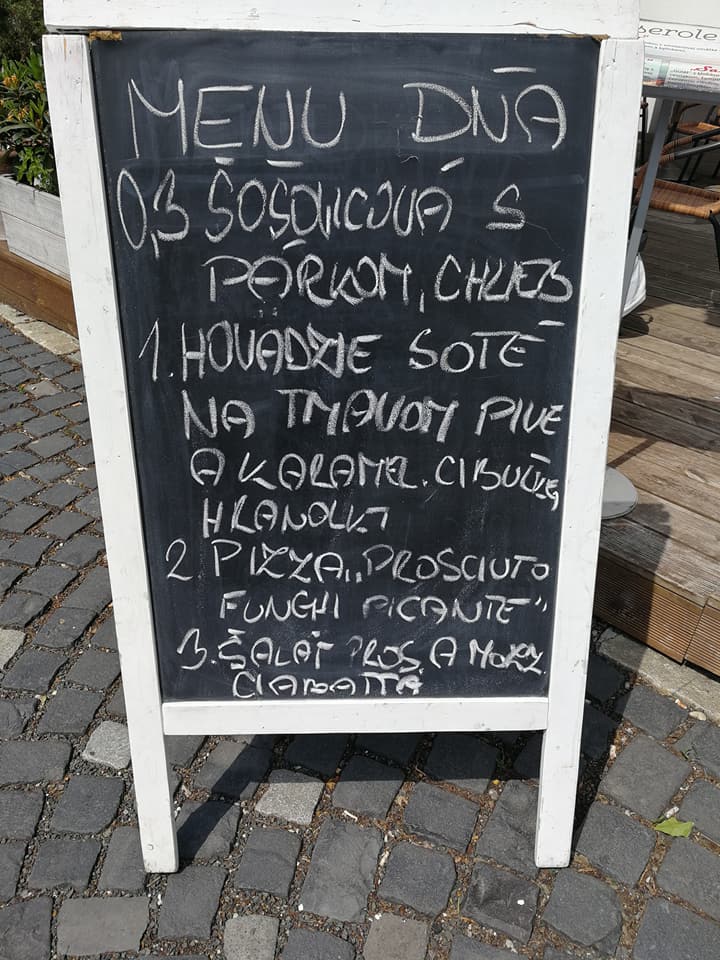 MENU DŇA
0,3 ŠOŠOVICOVÁ S
PÁRKOM, CHLIEB
1. HOVÄDZIE SOTÉ
NA TMAVOM PIVE
A KARAMEL. CIBUĽKE,
HRANOLKY
2 PIZZA „PROSCIUTO
FUNGHI PICANTE"
3. ŠALÁT PROS. A MOZZ.
CIABATTA
serole